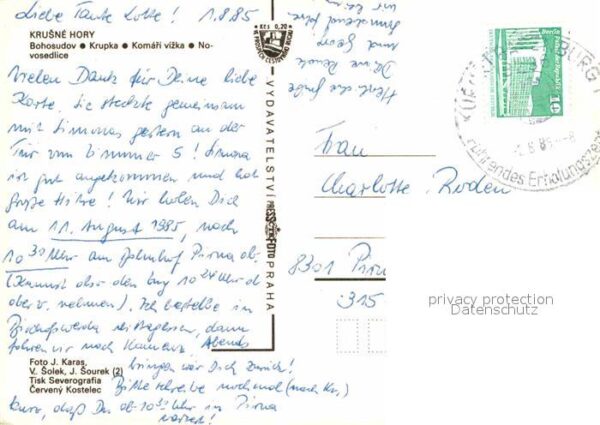 Liebe Tante Lotte! 1.8.85
KRUŠNÉ HORY
Bohosudov • Krupka • Komáří vížka • No-
vosedlice
Kčs 0,20
Vielen Dank für Deine liebe
Karte, sie steckte gemeinsam
mit Simonas gestern an der
Tür vom Zimmer 5! Simona
ist gut angekommen und hat
große Hitze! Wir holen Dich
am 11. August 1985, nach
10³⁰ Uhr am Bahnhof Pirna ab.
(Kannst also den Zug 10²⁴ Uhr
nehmen). Ich bestelle in
Bischofswerda Mittagessen, dann
fahren wir nach Kamenz. Abends
bringen wir Dich zurück!
Bitte schreibe nochmal (nach Kn.)
kurz, daß Du ab 10³⁰ Uhr in Pirna
wartest!
Foto J. Karas,
V. Šolek, J. Šourek (2)
Tisk Severografia
Červený Kostelec
VYDAVATELSTVÍ PRESSFOTO PRAHA
Herzl. Grüße
und Georg
Berlin
Palast der Republik
10
Frau
Charlotte Roden
8301 Pirn
315
privacy protection
Datenschutz